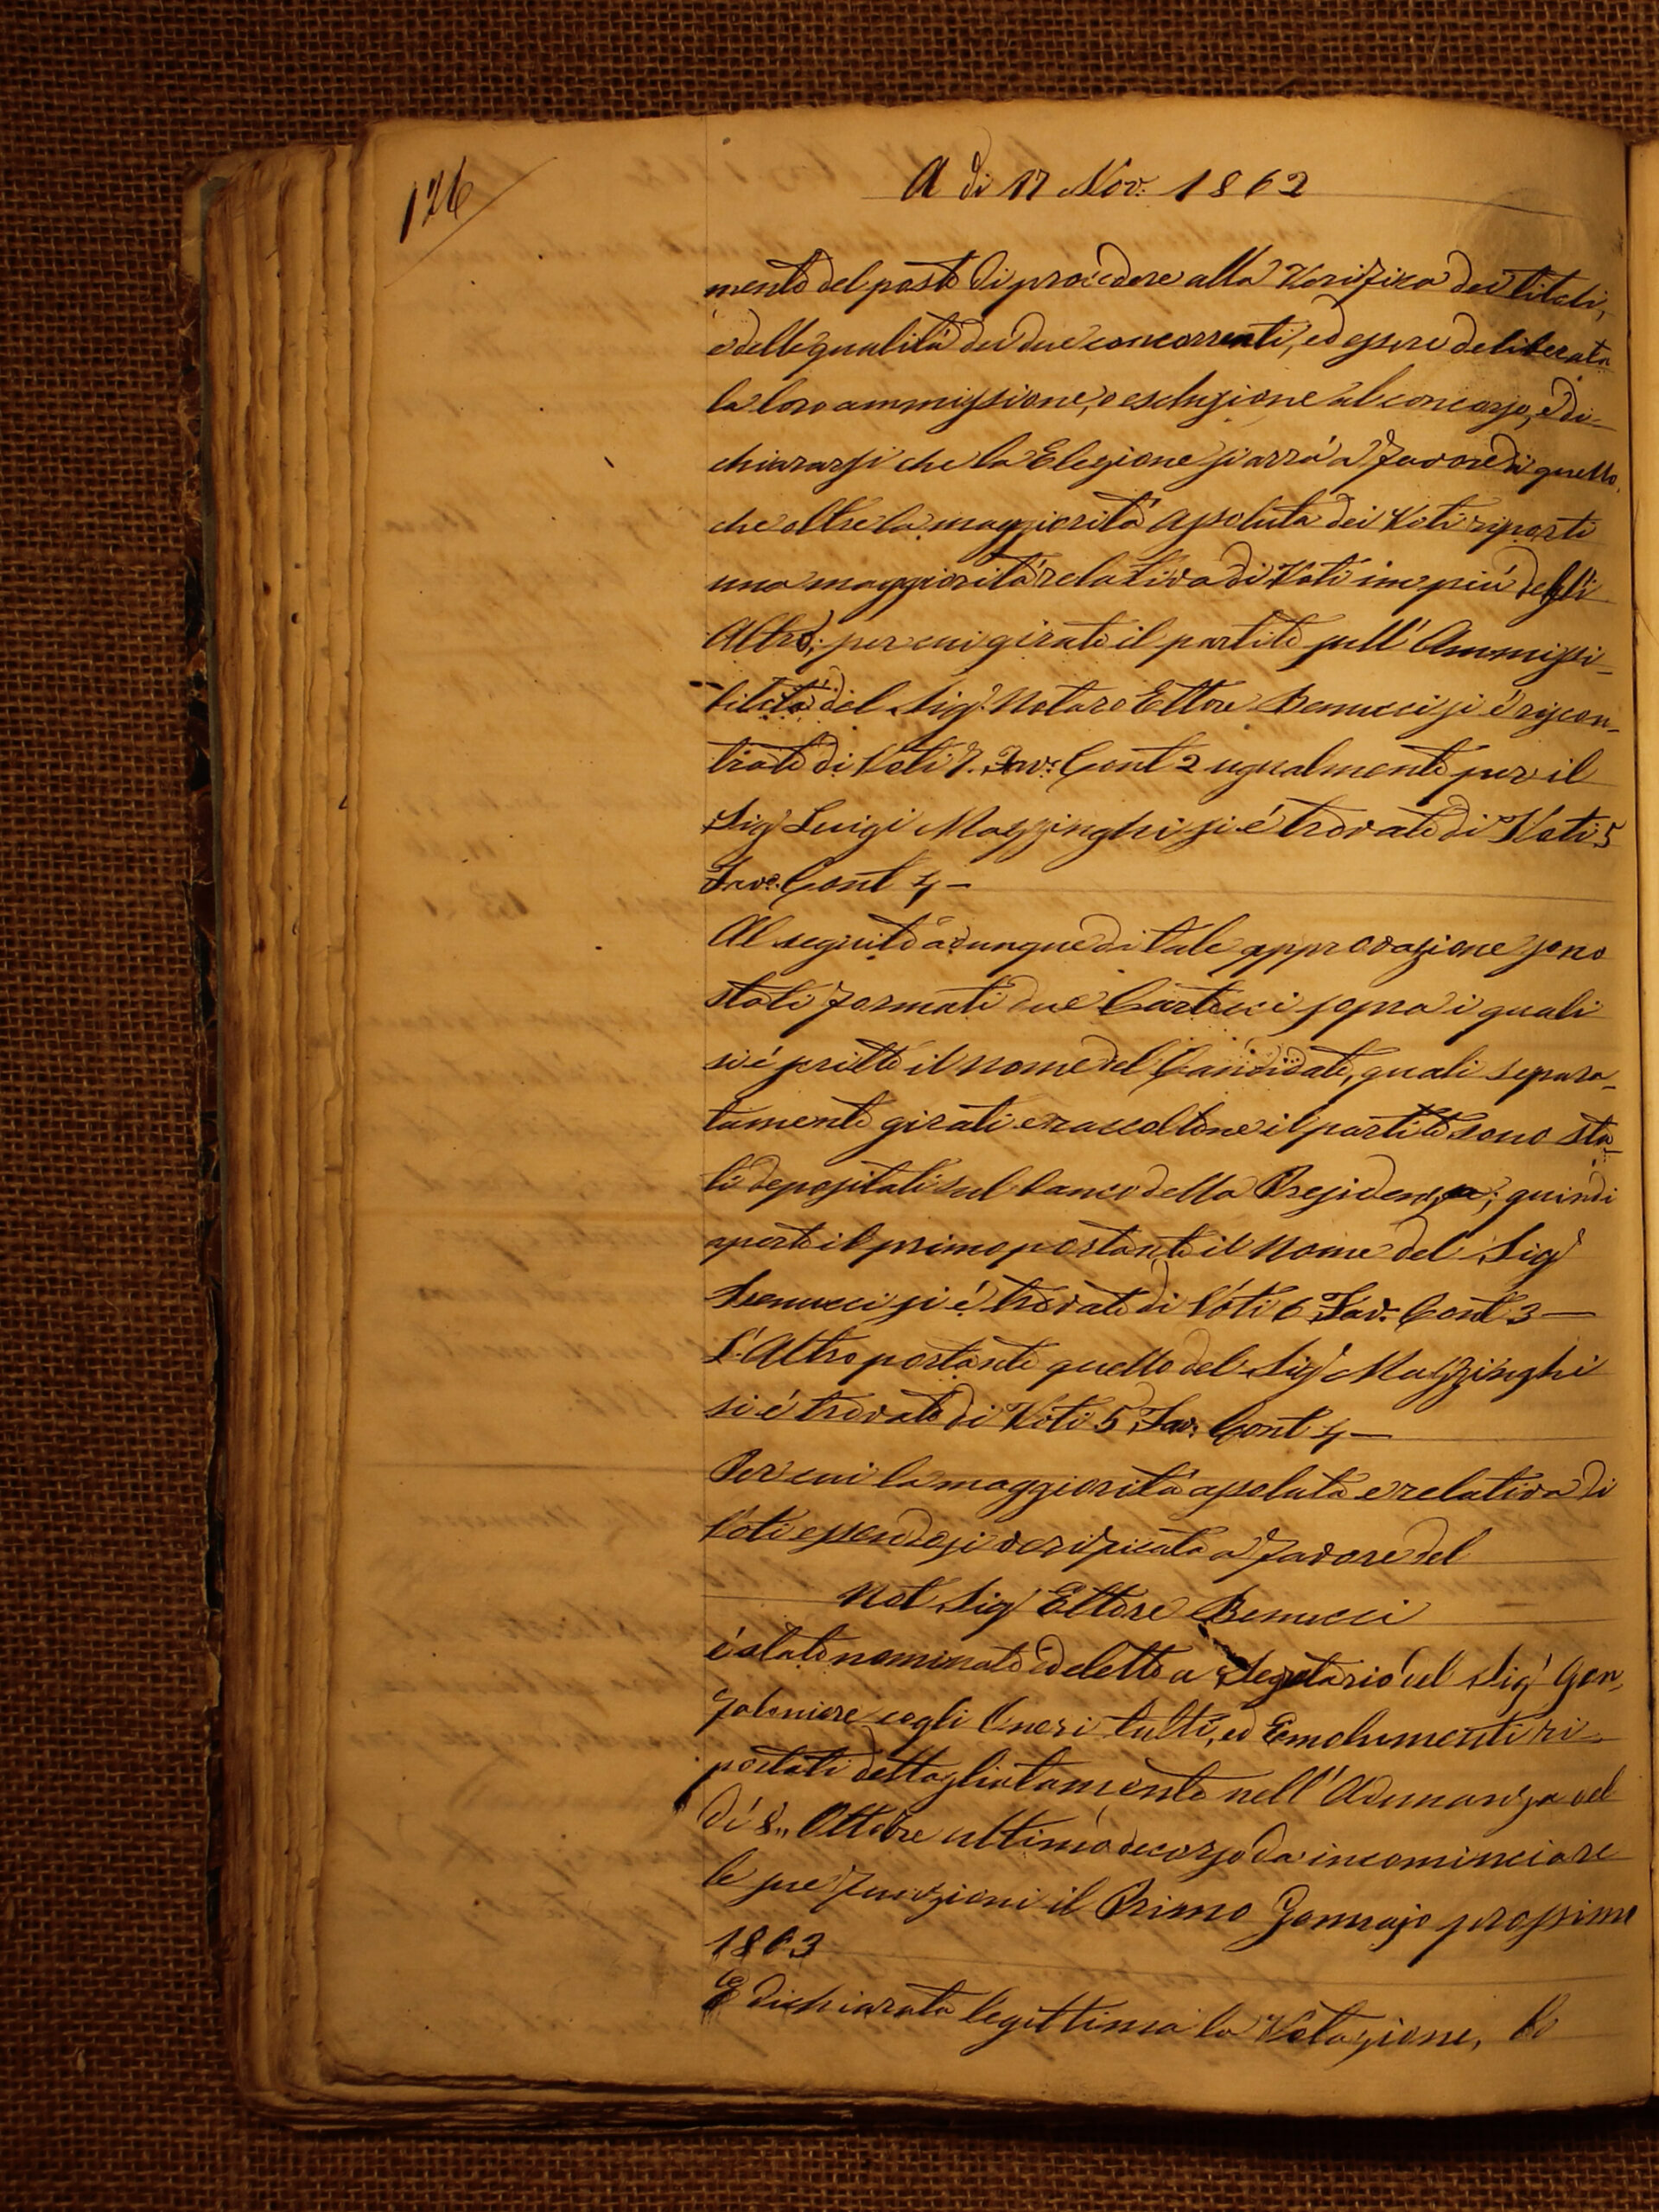 126
A dì 17 Nov: 1862
mento del posto di procedere alla Verifica dei titoli,
e delle qualità dei due concorrenti, ed essere deliberata
la loro ammissione, o esclusione al concorso, e di-
chiararsi che la Elezione si avrà a favore di quello,
che oltre la maggiorità assoluta dei Voti riporti
una maggiorità relativa di Voti in più dell'
Altro; per cui girato il partito sull' Ammissi-
bilità del Sig.r Notaro Ettore Benucci si è riscon-
trato di Voti 7. Fav: Cont 2 ugualmente per il
Sig Luigi Mazzinghi si è trovato di Voti 5
Fav: Cont 4 -
Al seguito adunque di tale approvazione sono
stati formati due Cartocci sopra i quali
si è scritto il nome del Candidato, quali separa-
tamente girati e raccoltone il partito sono sta-
ti depositati sul banco della Presidenza; quindi
aperto il primo portante il Nome del Sig
Benucci si è trovato di Voti 6 Fav: Cont 3 -
L'Altro portante quello del Sig Mazzinghi
si è trovato di Voti 5 Fav: Cont 4 -
Per cui la maggiorità assoluta e relativa di
Voti essendosi verificata a favore del
Not Sig Ettore Benucci
è stato nominato ed eletto a Segretario del Sig Gon-
faloniere cogli Oneri tutti, ed Emolumenti ri-
portati dettagliatamente nell' Adunanza del
dì 8,, Ottobre ultimo decorso da incominciare
le sue funzioni il Primo Gennajo prossimo
1863
E dichiarata legittima la Votazione, lo